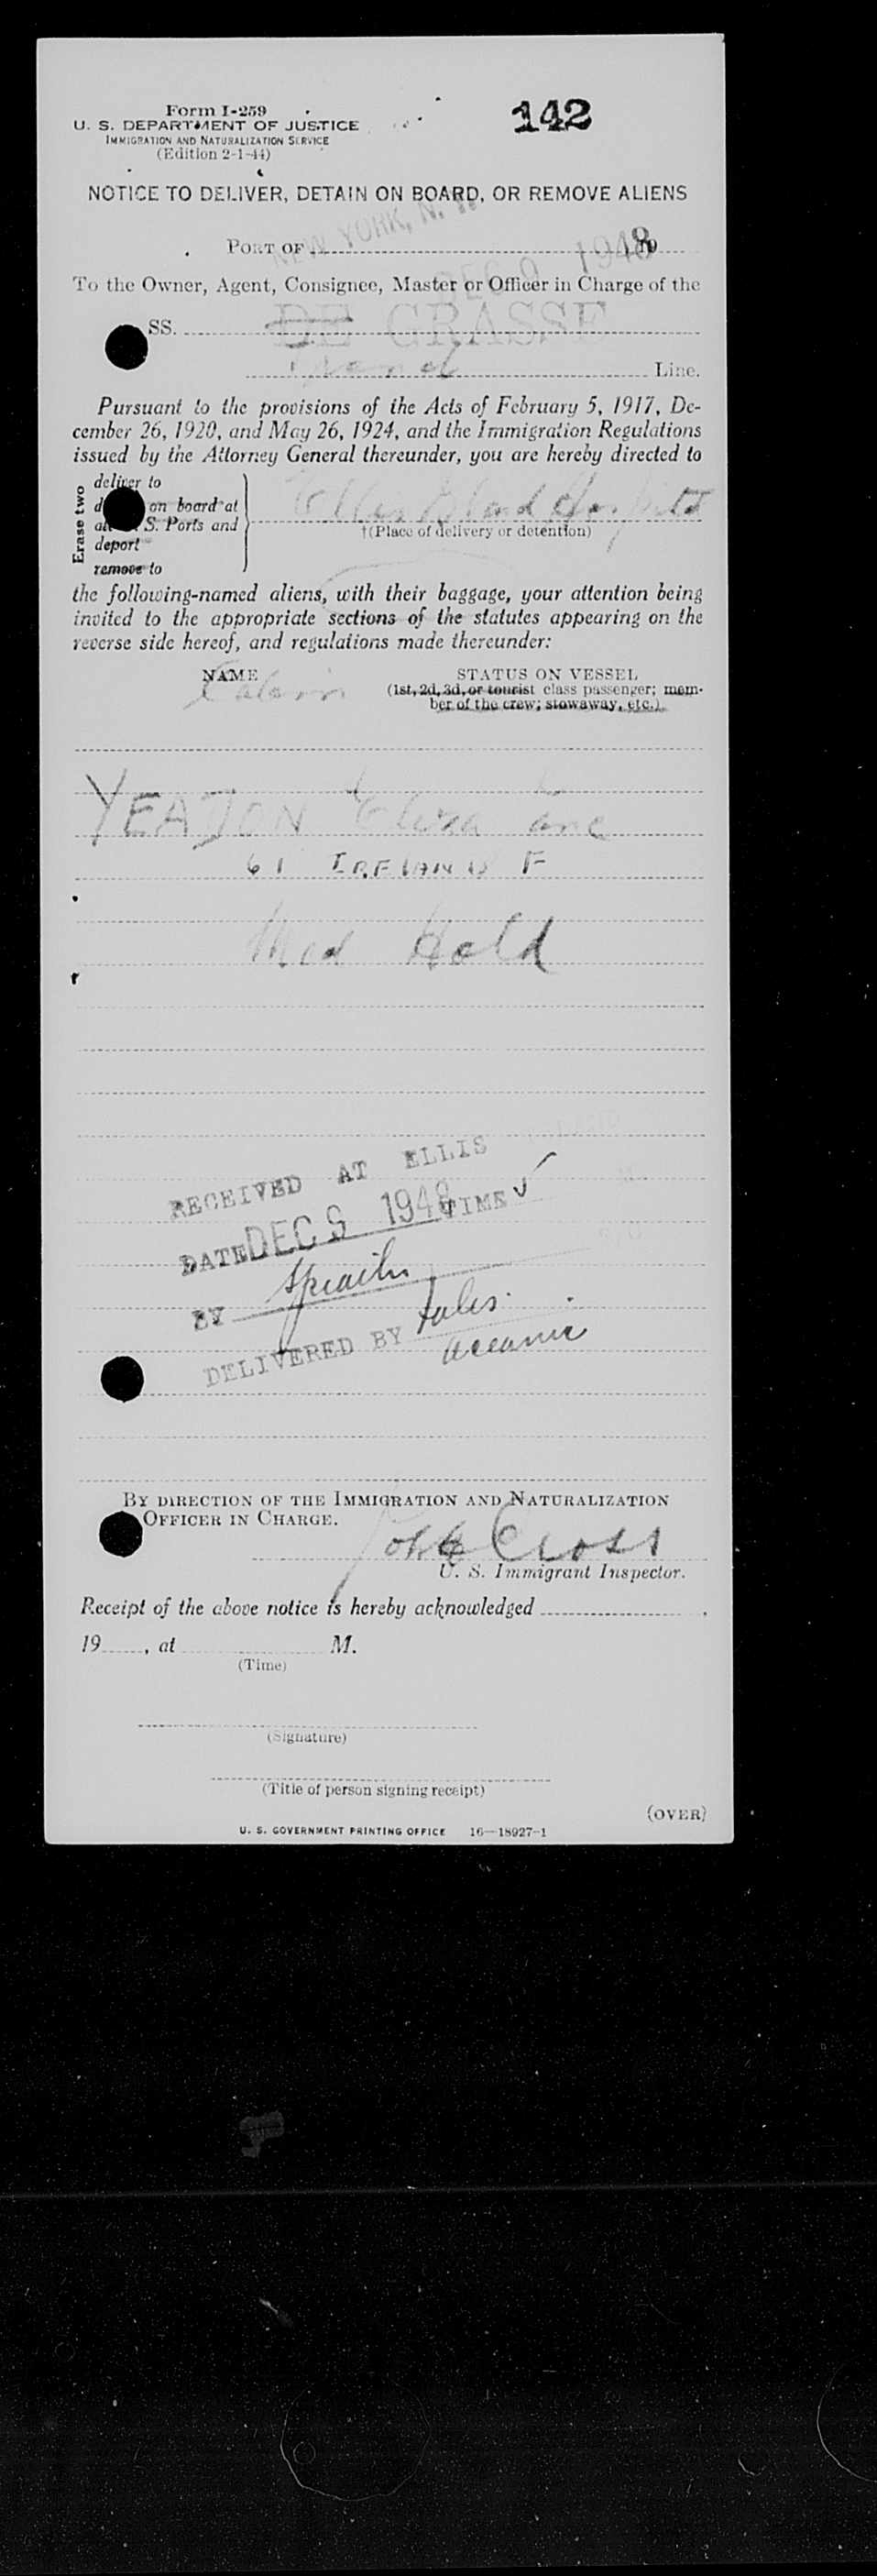 Form I-259
U. S. DEPARTMENT OF JUSTICE
IMMIGRATION AND NATURALIZATION SERVICE
(Edition 2-1-44)
142
NOTICE TO DELIVER, DETAIN ON BOARD, OR REMOVE ALIENS
PORT OF NEW YORK, N. Y. DEC 9 1948 19
To the Owner, Agent, Consignee, Master or Officer in Charge of the
SS. DE GRASSE
French Line.
Pursuant to the provisions of the Acts of February 5, 1917, De-
cember 26, 1920, and May 26, 1924, and the Immigration Regulations
issued by the Attorney General thereunder, you are hereby directed to
Erase two
deliver to
on board at
S. Ports and
deport
remove to
Ellis Island Hospital
†(Place of delivery or detention)
the following-named aliens, with their baggage, your attention being
invited to the appropriate sections of the statutes appearing on the
reverse side hereof, and regulations made thereunder:
NAME STATUS ON VESSEL
Cabin (1st, 2d, 3d, or tourist class passenger; mem-
ber of the crew; stowaway, etc.)
YEADON Eliza Jane
61 IRELAND F
Med Hold
RECEIVED AT ELLIS
DATE DEC 9 1948 TIME ✓
BY
DELIVERED BY
Oceanic
BY DIRECTION OF THE IMMIGRATION AND NATURALIZATION
OFFICER IN CHARGE.
Cross
U. S. Immigrant Inspector.
Receipt of the above notice is hereby acknowledged
19, at M.
(Time)
(Signature)
(Title of person signing receipt)
(OVER)
U. S. GOVERNMENT PRINTING OFFICE 16—18927-1